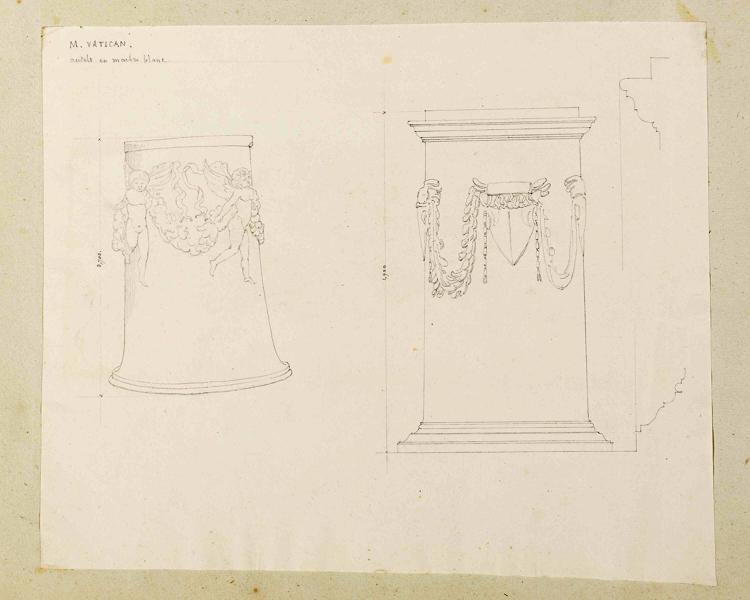 M. VATICAN.
autels en marbre blanc
1,200